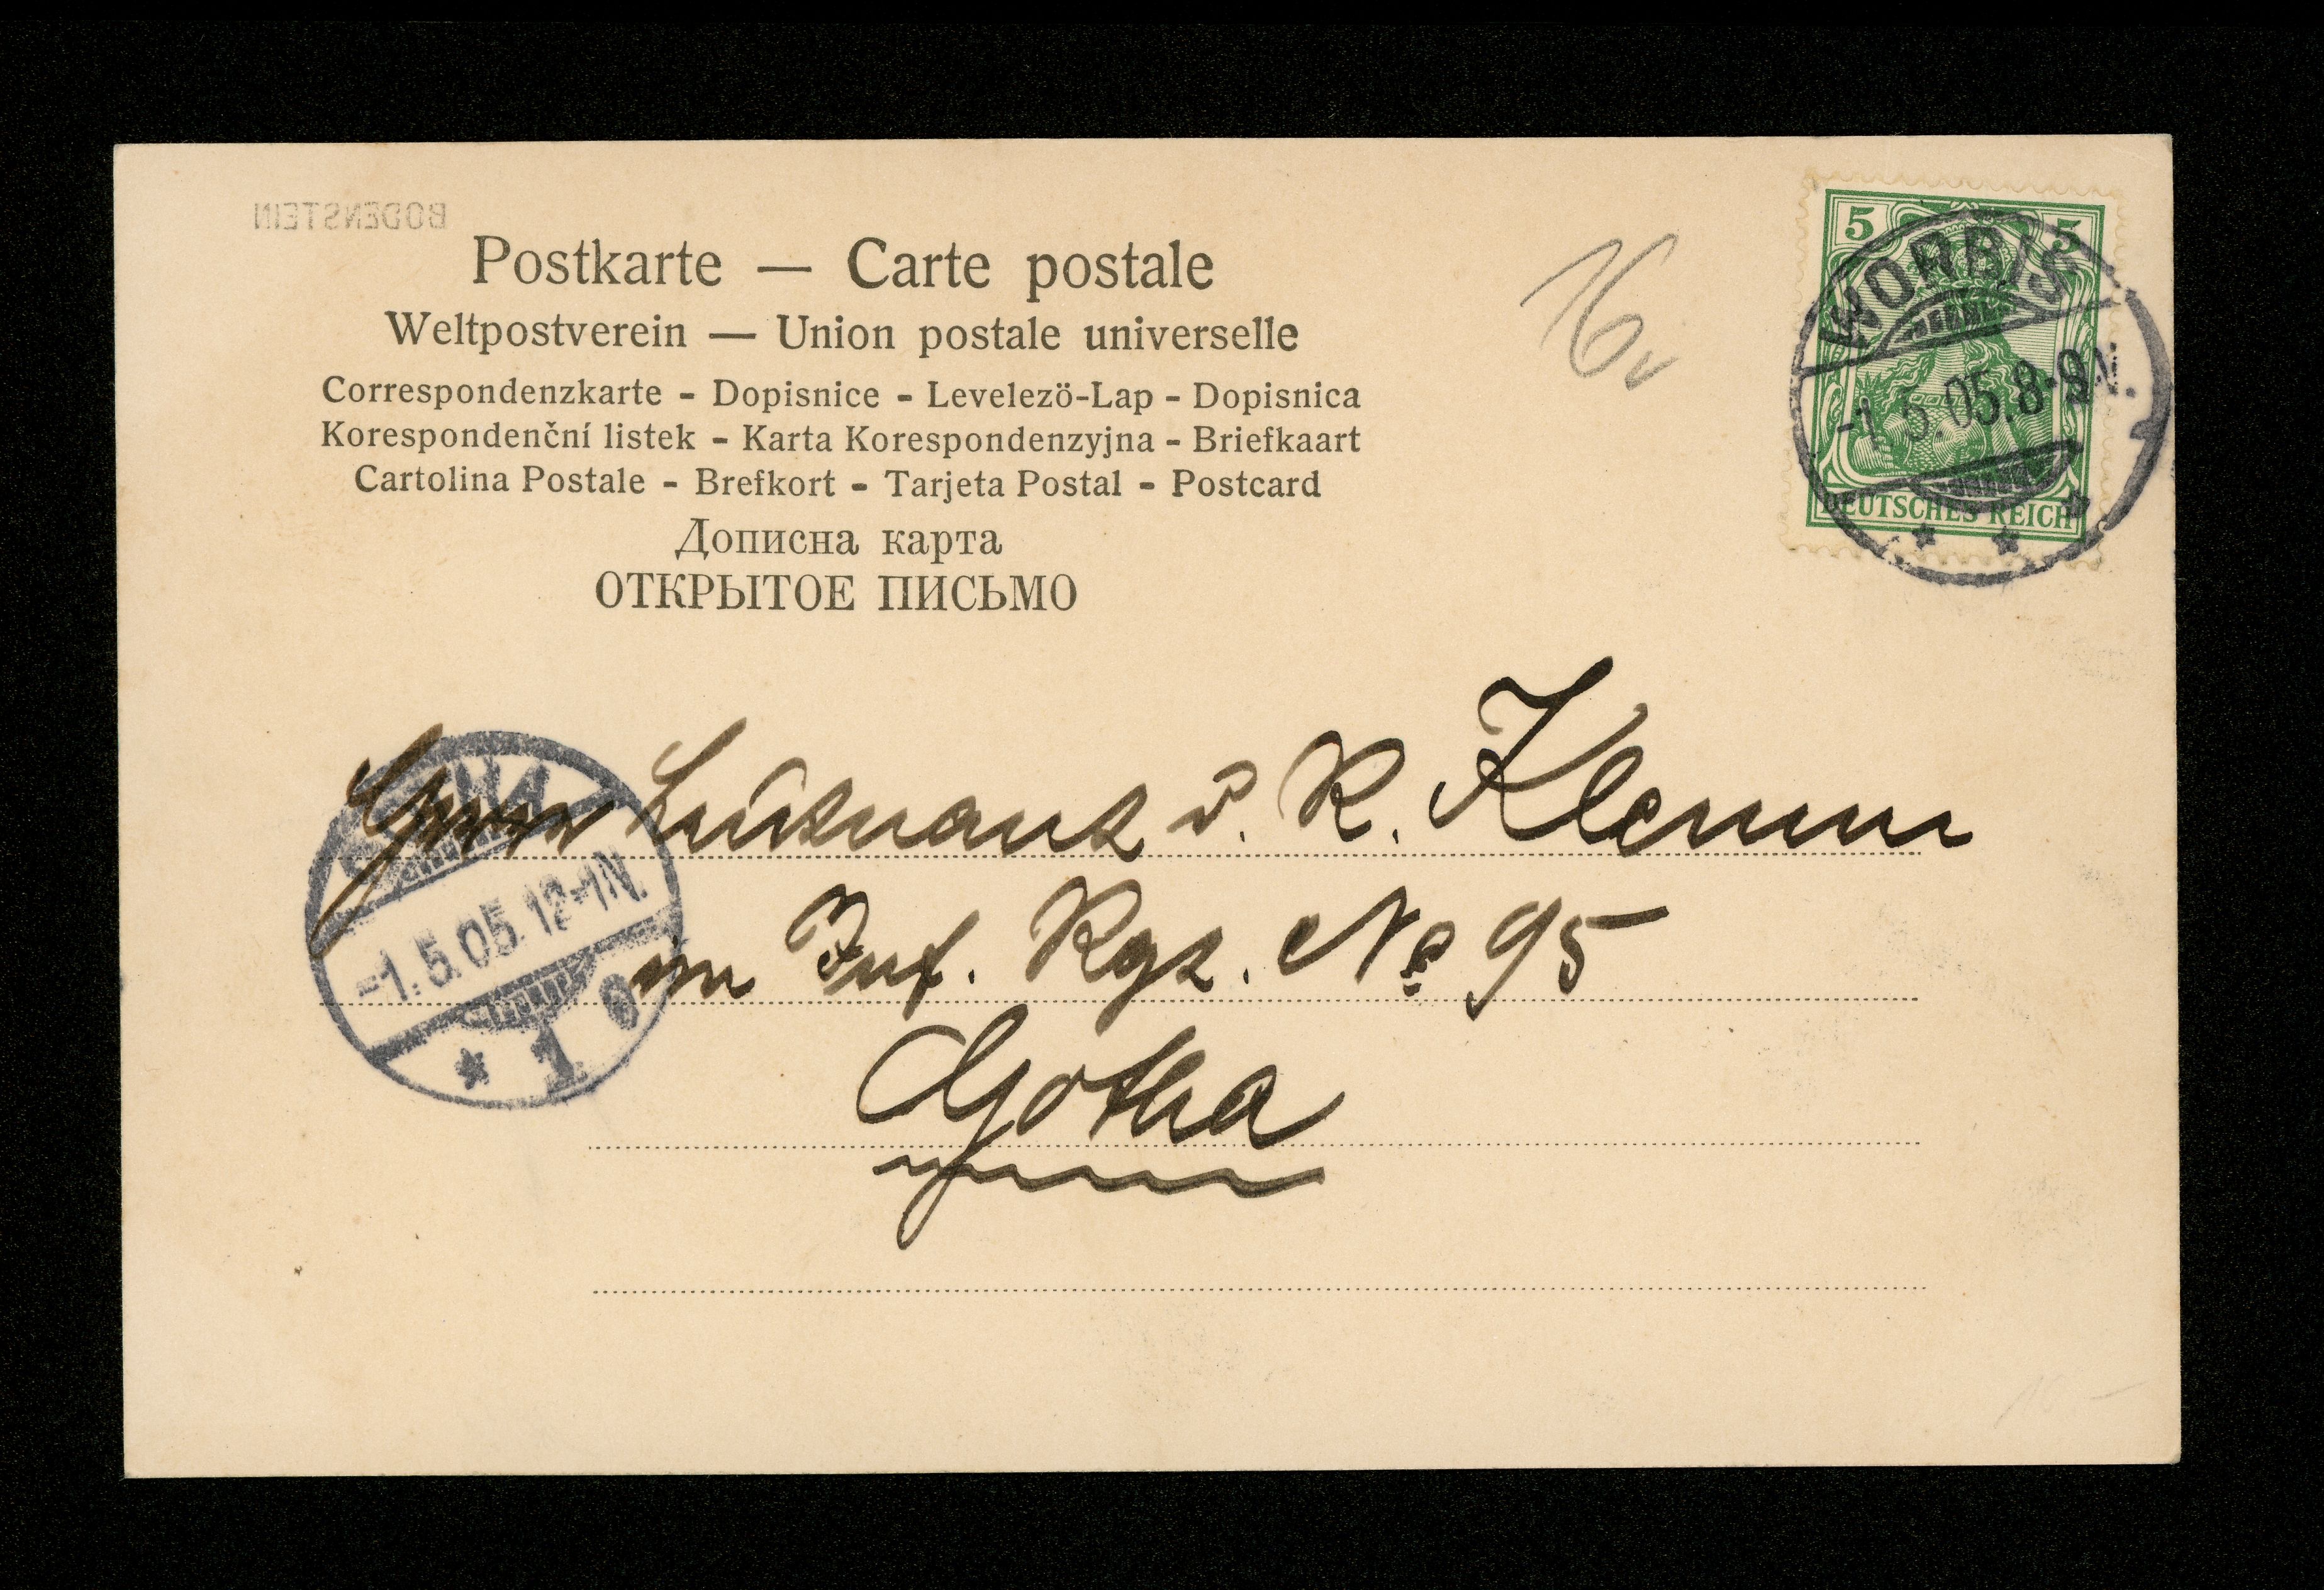 BODENSTEIN
Postkarte — Carte postale
Weltpostverein — Union postale universelle
Correspondenzkarte - Dopisnice - Levelezö-Lap - Dopisnica
Korespondenční listek - Karta Korespondenzyjna - Briefkaart
Cartolina Postale - Brefkort - Tarjeta Postal - Postcard
Дописна карта
ОТКРЫТОЕ ПИСЬМО
16
5 5
DEUTSCHES REICH
WORBIS
-1.5.05.8-9V.
Herrn Leutnant d. R. Klemm
im Inf. Rgt. No 95
Gotha
-1.5.05.12-1N.
* 1